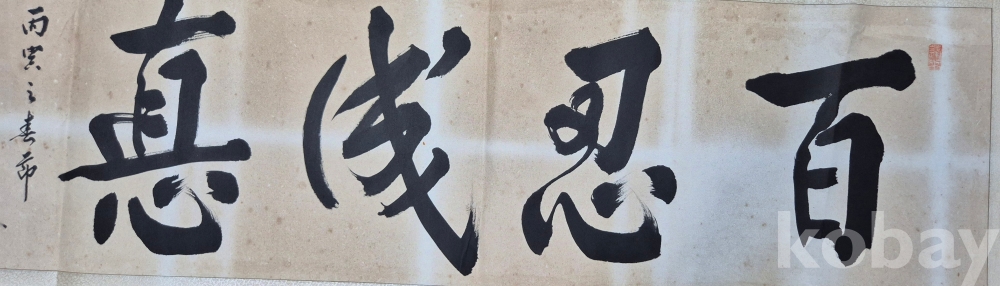 百忍成悳
丙寅之春節
kobay